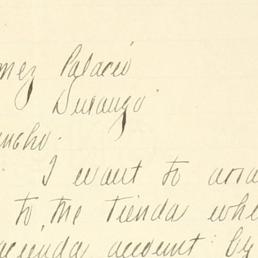 mez Palacio
Durango.
ancho.
I want to arra
to the tienda whe
acienda account by